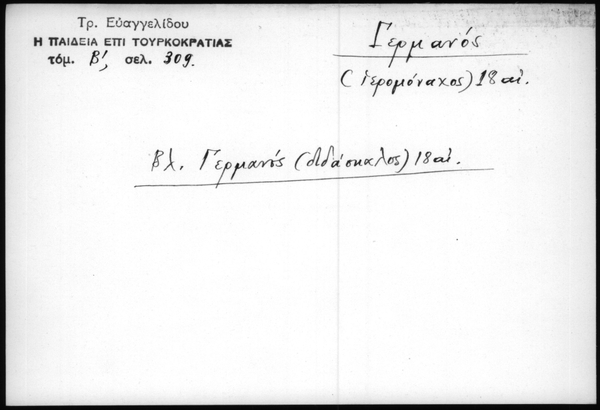 Τρ. Εὐαγγελίδου
Η ΠΑΙΔΕΙΑ ΕΠΙ ΤΟΥΡΚΟΚΡΑΤΙΑΣ
τόμ. Β', σελ. 309.
Γερμανός
(ἱερομόναχος) 18 αἰ.
Βλ. Γερμανός (διδάσκαλος) 18 αἰ.